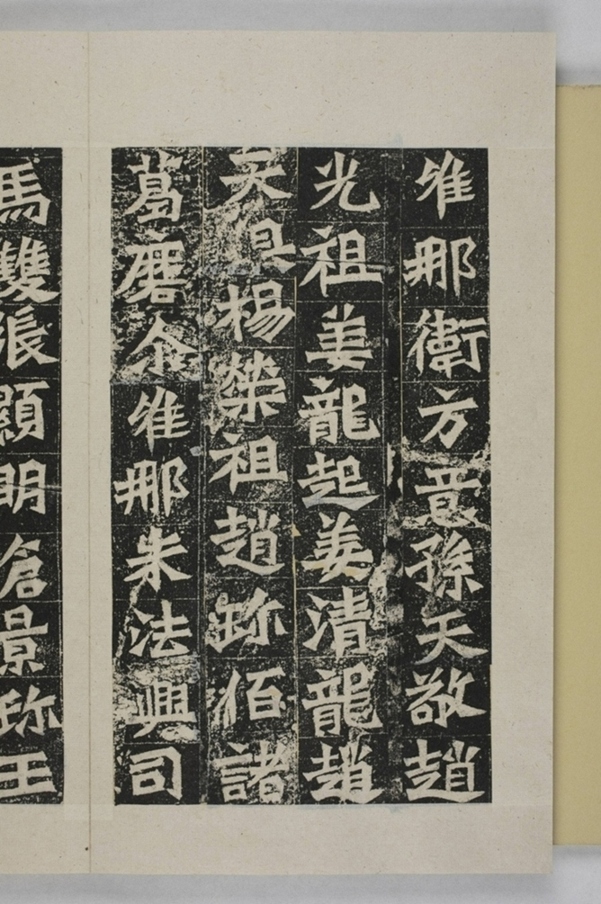 唯那衛方意孫天敬趙
光祖姜龍起姜清龍趙
天俱楊榮祖趙珎佰諸
葛磨尒唯那朱法興司
馬雙張顯明倉景珎王